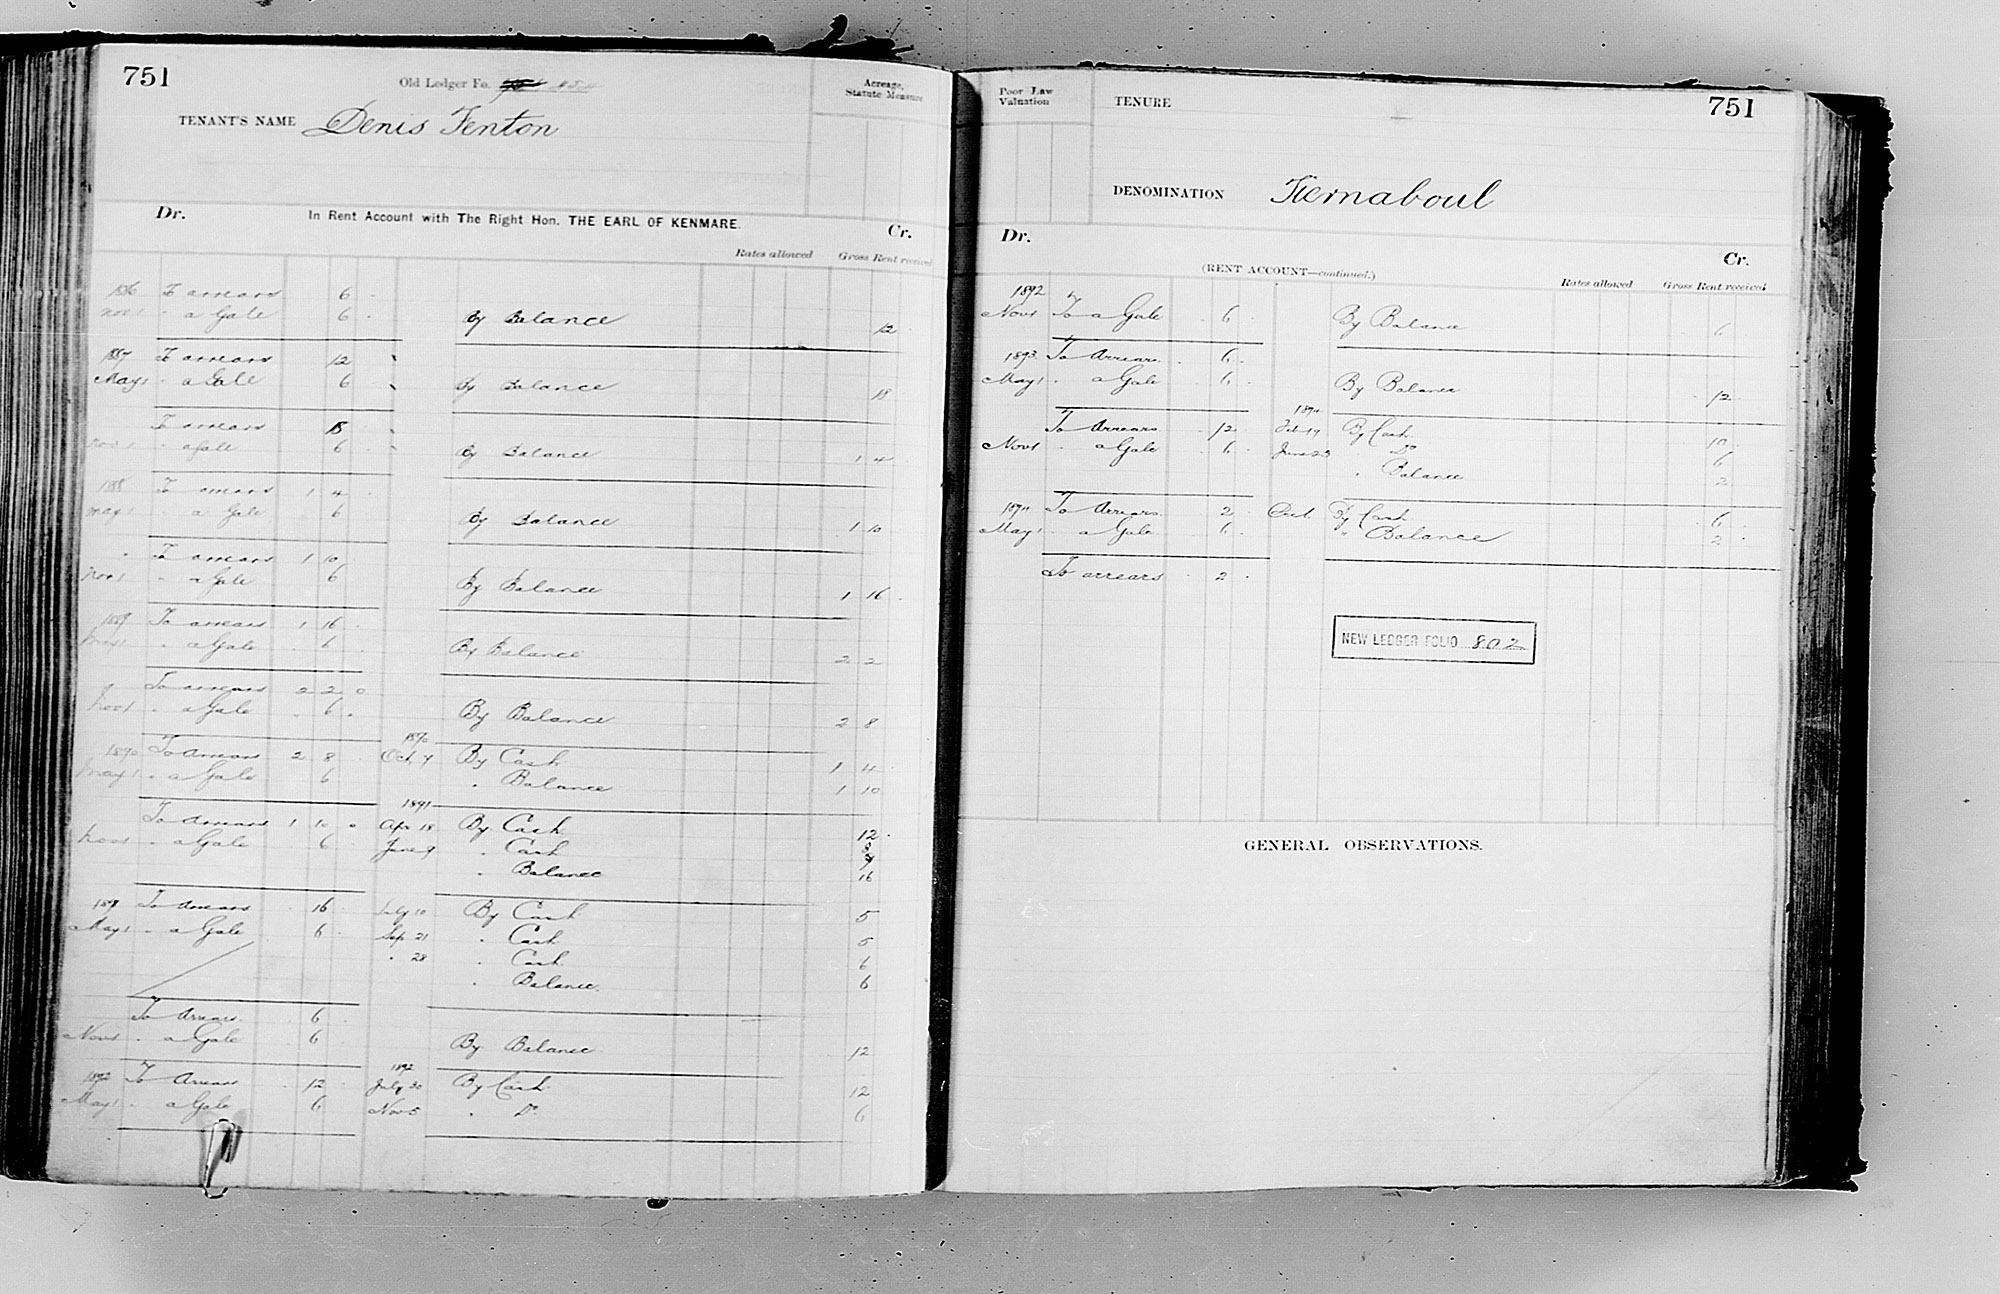 751
Old Ledger Fo.
Acreage,
Statute Measure
TENANT'S NAME Denis Fenton
Dr. In Rent Account with The Right Hon. THE EARL OF KENMARE. Cr.
Rates allowed Gross Rent received
1886 To arrears 6
Nov 1 " a Gale 6 By Balance 12
1887 To arrears 12
May 1 " a Gale 6 By Balance 18
To arrears 18
Nov 1 a Gale 6 By Balance 1 4
1888 To arrears 1 4
May 1 " a Gale 6 By Balance 1 10
" To arrears 1 10
Nov 1 " a Gale 6 By Balance 1 16
1889 To arrears 1 16
May 1 " a Gale 6 By Balance 2 2
" To arrears 2 2 0
Nov 1 " a Gale 6 By Balance 2 8
1890
1890 To Arrears 2 8 Oct 7 By Cash 1 4
May 1 " a Gale 6 " Balance 1 10
1891
To Arrears 1 10 0 Apr 18 By Cash 12
Nov 1 " a Gale 6 June 9 " Cash 8
" Balance 16
1891 To Arrears 16 July 10 By Cash 5
May 1 " a Gale 6 Sep 21 " Cash 5
" 28 " Cash 6
" Balance 6
To Arrears 6
Nov 1 " a Gale 6 By Balance 12
1892
1892 To Arrears 12 July 30 By Cash 12
May 1 " a Gale 6 Nov 5 " Do 6
Poor Law
Valuation
TENURE
751
DENOMINATION Tiernaboul
Dr. Cr.
(RENT ACCOUNT—continued.)
Rates allowed Gross Rent received
1892
Nov 1 To a Gale 6 By Balance 6
1893 To Arrears 6
May 1 " a Gale 6 By Balance 12
1894
To Arrears 12 Feb 19 By Cash 10
Nov 1 " a Gale 6 June 23 " Do 6
" Balance 2
1894 To Arrears 2 Oct By Cash 6
May 1 " a Gale 6 " Balance 2
To arrears 2
NEW LEDGER FOLIO 802
GENERAL OBSERVATIONS.